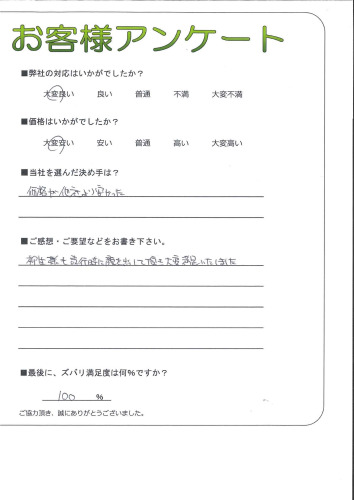 お客様アンケート
■弊社の対応はいかがでしたか?
大変良い 良い 普通 不満 大変不満
■価格はいかがでしたか?
大変安い 安い 普通 高い 大変高い
■当社を選んだ決め手は?
価格が他社より安かった
■ご感想・ご要望などをお書き下さい。
も 的に顔を出して頂き大変満足いたしました
■最後に、ズバリ満足度は何%ですか?
100 %
ご協力頂き、誠にありがとうございました。